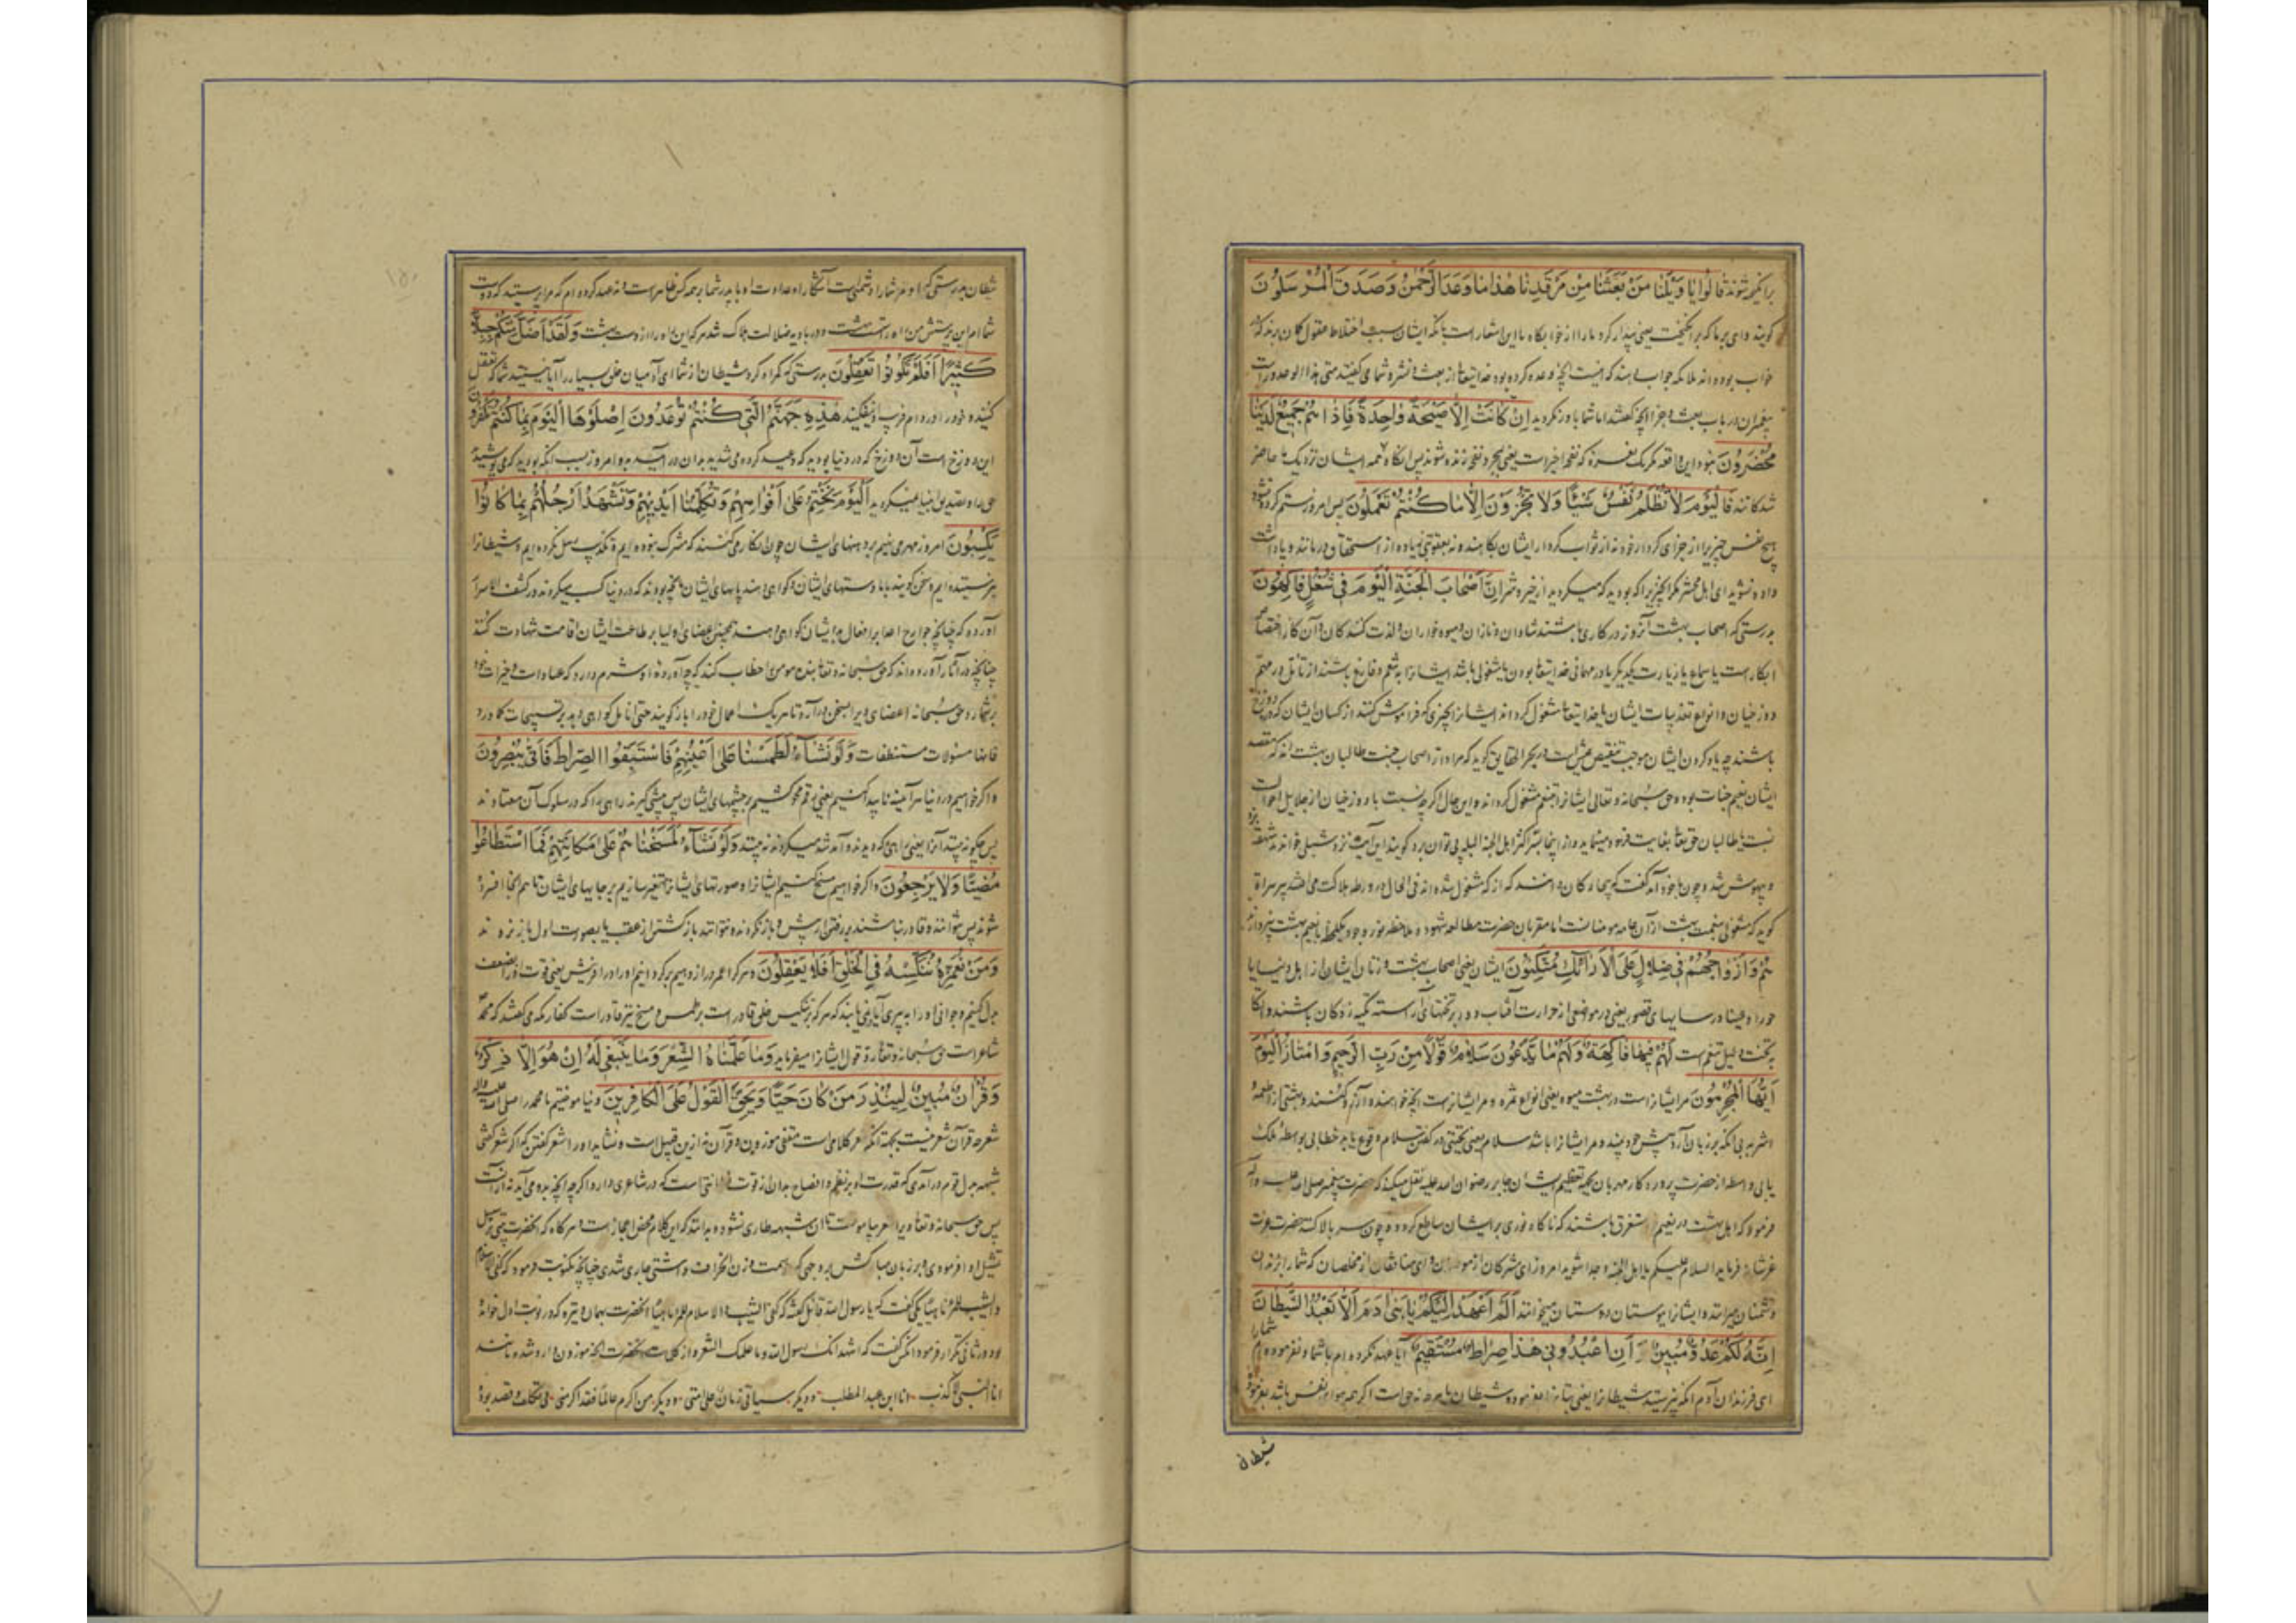 برانگیخته شوند قالوا یا ویلنا من بعثنا من مرقدنا هذا ما وعد الرحمن وصدق المرسلون
گویند وای بر ما که برانگیخت یعنی بیدار کرد ما را از خوابگاه ما این اشعار است بانکه ایشان بسبب اختلاط عقول گمان برند که
خواب بوده‌اند ملائکه جواب دهند که اینست آنچه وعده کرده بود خدایتعالی از بعث و نشر و شما می گفتید متی هذا الوعد
پیغمبران در باب بعث و جزا آنچه گفتند اما شما باور نکردید ان کانت الا صیحة واحدة فاذا هم جمیع لدینا
محضرون نبود این واقعه مگر یک نعره که نفخه اخیر است یعنی بمجرد نفخ زنده شوند پس آنگاه همه ایشان نزدیک ما حاضر
شدگانند فالیوم لا تظلم نفس شیئا ولا تجزون الا ما کنتم تعملون پس امروز ستم کرده نشود
هیچ نفس چیزی را از جزای کردار خود نه از ثواب کردار ایشان بکاهند و نه بعقوبتی زیاده از استحقاق درمانند و پاداشت
داده نشوید ای اهل محشر مگر آنچیزیرا که بودید که میکردید از خیر و شر ان اصحاب الجنة الیوم فی شغل فاکهون
بدرستی که اصحاب بهشت آنروز در کاری باشند شادان و نازان و میوه خواران و لذت کنندگان و آن کار
ابکار است یا سماع یا زیارت یکدیگر یا در مهمانی خدایتعالی بودن
دوزخیان و انواع تعذیبات ایشان یا خدایتعالی مشغول کرداند ایشانرا از چیزی که فراموش کنند از کسان ایشان که در دوزخ
باشند چه یاد کردن ایشان موجب تنقیص عیش است و در بحر الحقایق گوید که مراد از اصحاب جنت طالبان بهشت اند که مقصد
ایشان نعیم جنات بود و حق سبحانه و تعالی ایشانرا بتنعم مشغول گرداند و این حال اگر چه نسبت با دوزخیان از جلایل احوالست
نسبت با طالبان حق بغایت فرود مینماید و از اینجا سر اکثر اهل الجنة البله پی توان برد گویند این آیت نزد شبلی خواندند
و بیهوش شد و چون با خود آمد گفت که بیچارگان دانند که از که مشغول شده اند فی الحال در ورطه هلاکت می افتند پیر هراة
گوید که مشغولی بنعمت بهشت از آن عامه مومنانست اما مقربان حضرت مطالعه شهود و ملاحظه نور وجود یکلحظه با نعیم بهشت نپردازند
هم وازواجهم فی ظلال علی الارائک متکئون ایشان یعنی اصحاب بهشت و زنان ایشان از اهل دنیا یا
حورا و عینا در سایهای قصور یعنی در موضعی از حرارت آفتاب دور بر تختهای آراسته تکیه زدگان باشند و اتکا
بر تخت دلیل تنعم است لهم فیها فاکهة ولهم ما یدعون سلام قولا من رب الرحیم وامتازوا الیوم
ایها المجرمون مر ایشانراست در بهشت میوه یعنی انواع ثمره و مر ایشانراست آنچه خواهند و آرزو کنند
اشربه بی آنکه بر زبان آرند پیش خود بینند و مر ایشانرا باشد سلام یعنی تحیتی در گفتن سلام وقوع یابد خطابی بواسطه ملک
یا بی واسطه از حضرت پروردگار مهربان بجهة تعظیم ایشان جابر رضوان الله علیه نقل میکند که حضرت پیغمبر صلی الله علیه وآله
فرمود که اهل بهشت در نعیم مستغرق باشند که ناگاه نوری بر ایشان ساطع گردد و چون سر بالا کنند حضرت عزت
عز شانه فرماید السلام علیکم یا اهل الجنة و جدا شوید امروز ای مشرکان از مومنان و ای منافقان از مخلصان که شما را
دشمنان میراندند و ایشانرا بوستان دوستان میخوانند الم اعهد الیکم یا بنی ادم ان لا تعبدوا الشیطان
انه لکم عدو مبین وان اعبدونی هذا صراط مستقیم آیا عهد نکرده ام با شما و نفرموده ام شما را
ای فرزندان آدم آنکه نپرستید شیطانرا یعنی بتانرا بفرموده شیطان
شیطان
شیطان بدرستی که او مر شما را دشمنی است آشکارا و عداوت او با پدر شما بر همه کس ظاهر است و نه عهد کرده ام که مرا پرستید که دوست
شماام این پرستش من راه راست است ولقد اضل منکم جبلا
کثیرا افلم تکونوا تعقلون بدرستی که گمراه کرد شیطان از شما ای آدمیان خلق بسیار را آیا نیستید شما که تعقل
کنید و خود را در دام فریب او نیفکنید هذه جهنم التی کنتم توعدون اصلوها الیوم بما کنتم تکفرون
این دوزخ است آن دوزخ که در دنیا بودید که وعید کرده می شدید بدان در آیید بدو امروز بسبب آنکه بودید که می پوشیدید
حق را و تصدیق انبیا نمیکردید الیوم نختم علی افواههم وتکلمنا ایدیهم وتشهد ارجلهم بما کانوا
یکسبون امروز مهر می نهیم بر دهنهای ایشان چون انکار می کنند که مشرک نبوده ایم و تکذیب رسل نکرده ایم و شیطانرا
نپرستیده ایم و سخن گویند با ما دستهای ایشان و گواهی دهند پایهای ایشان بآنچه بودند که در دنیا کسب میکردند در کشف الاسرار
آورده که چنانچه جوارح اعدا بر افعال بد ایشان گواهی دهند همچنین اعضای اولیا بر طاعت ایشان اقامت شهادت کنند
چنانچه در آثار آورده اند که حق سبحانه و تعالی بنده مومن را خطاب کند که چه آورده او شرم دارد که عبادات و خیرات خود
بر شمارد حق سبحانه اعضای ویرا بسخن درآرد تا هر یک اعمال خود را باز گویند حتی انامل گواهی دهد بر تسبیحات کما ورد
فانها مسئولات مستنطقات ولو نشاء لطمسنا علی اعینهم فاستبقوا الصراط فانی یبصرون
و اگر خواهیم در دنیا هر آینه ناپیدا کنیم یعنی رقم محو کشیم بر چشمهای ایشان پس پیشی گیرند راهی را که در سلوک آن معتادند
پس چگونه بینند آنرا یعنی راهی که دیدند و آمد شد میکردند نه بینند ولو نشاء لمسخناهم علی مکانتهم فما استطاعوا
مضیا ولا یرجعون و اگر خواهیم مسخ کنیم ایشانرا و صورتهای ایشانرا متغیر سازیم بر جایهای ایشان تا هم آنجا افسرده
شوند پس نتوانند و قادر نباشند بر رفتن از پیش و باز نگردند و نتوانند باز گشتن از عقب یا بصورت اول باز نروند
ومن نعمره ننکسه فی الخلق افلا یعقلون و هر کرا عمر دراز دهیم برگردانیم او را در آفرینش یعنی قوت او را بضعف
بدل کنیم و جوانی او را به پیری آیا درنمی یابند که هر که بر تنکیس خلق قادر است بر طمس و مسخ نیز قادر است کفار مکه می گفتند که محمد
شاعر است حق سبحانه و تعالی رد قول ایشانرا میفرماید وما علمناه الشعر وما ینبغی له ان هو الا ذکر
وقران مبین لینذر من کان حیا ویحق القول علی الکافرین و نیاموختیم ما محمد را صلی الله علیه وآله
شعر چه قرآن شعر نیست بجهة آنکه شعر کلامی است مقفی موزون و قرآن نه از این قبیل است و نشاید او را شعر گفتن که اگر شعر گفتی
شبهه بدل قوم درآمدی که قدرت او بر نظم و افصاح بدان از قوت فطانت است که در شاعری دارد
پس حق سبحانه و تعالی ویرا شعر نیاموخت تا آن شبهه طاری نشود و بدانند که این کلام محض اعجاز است و هر گاه که آنحضرت
تمثل ادا فرمودی و بر زبان مبارکش بر وجهی که سمت وزن انحراف داشتی جاری شدی چنانچه یک نوبت فرمود که کفی الاسلام
والشیب للمرء ناهیا یکی گفت که یا رسول الله قائل گفته که کفی الشیب والاسلام للمرء ناهیا آنحضرت بهمان وتیره که در نوبت اول خوانده
بود در ثانی تکرار فرمود آنکس گفت که اشهد انک رسول الله وما علمک الشعر و از کلمات آنحضرت آنچه موزون وارد شده مانند
انا النبی لا کذب انا ابن عبد المطلب و دیگر سیاتی زمان علی امتی و دیگر من اکرم عالما فقد اکرمنی بی تکلف و قصد بوده